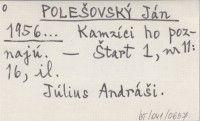 POLEŠOVSKÝ Ján
1956... Kamzíci ho poz-
najú. — Štart 1, nr 11:
16, il.
Július Andráši.